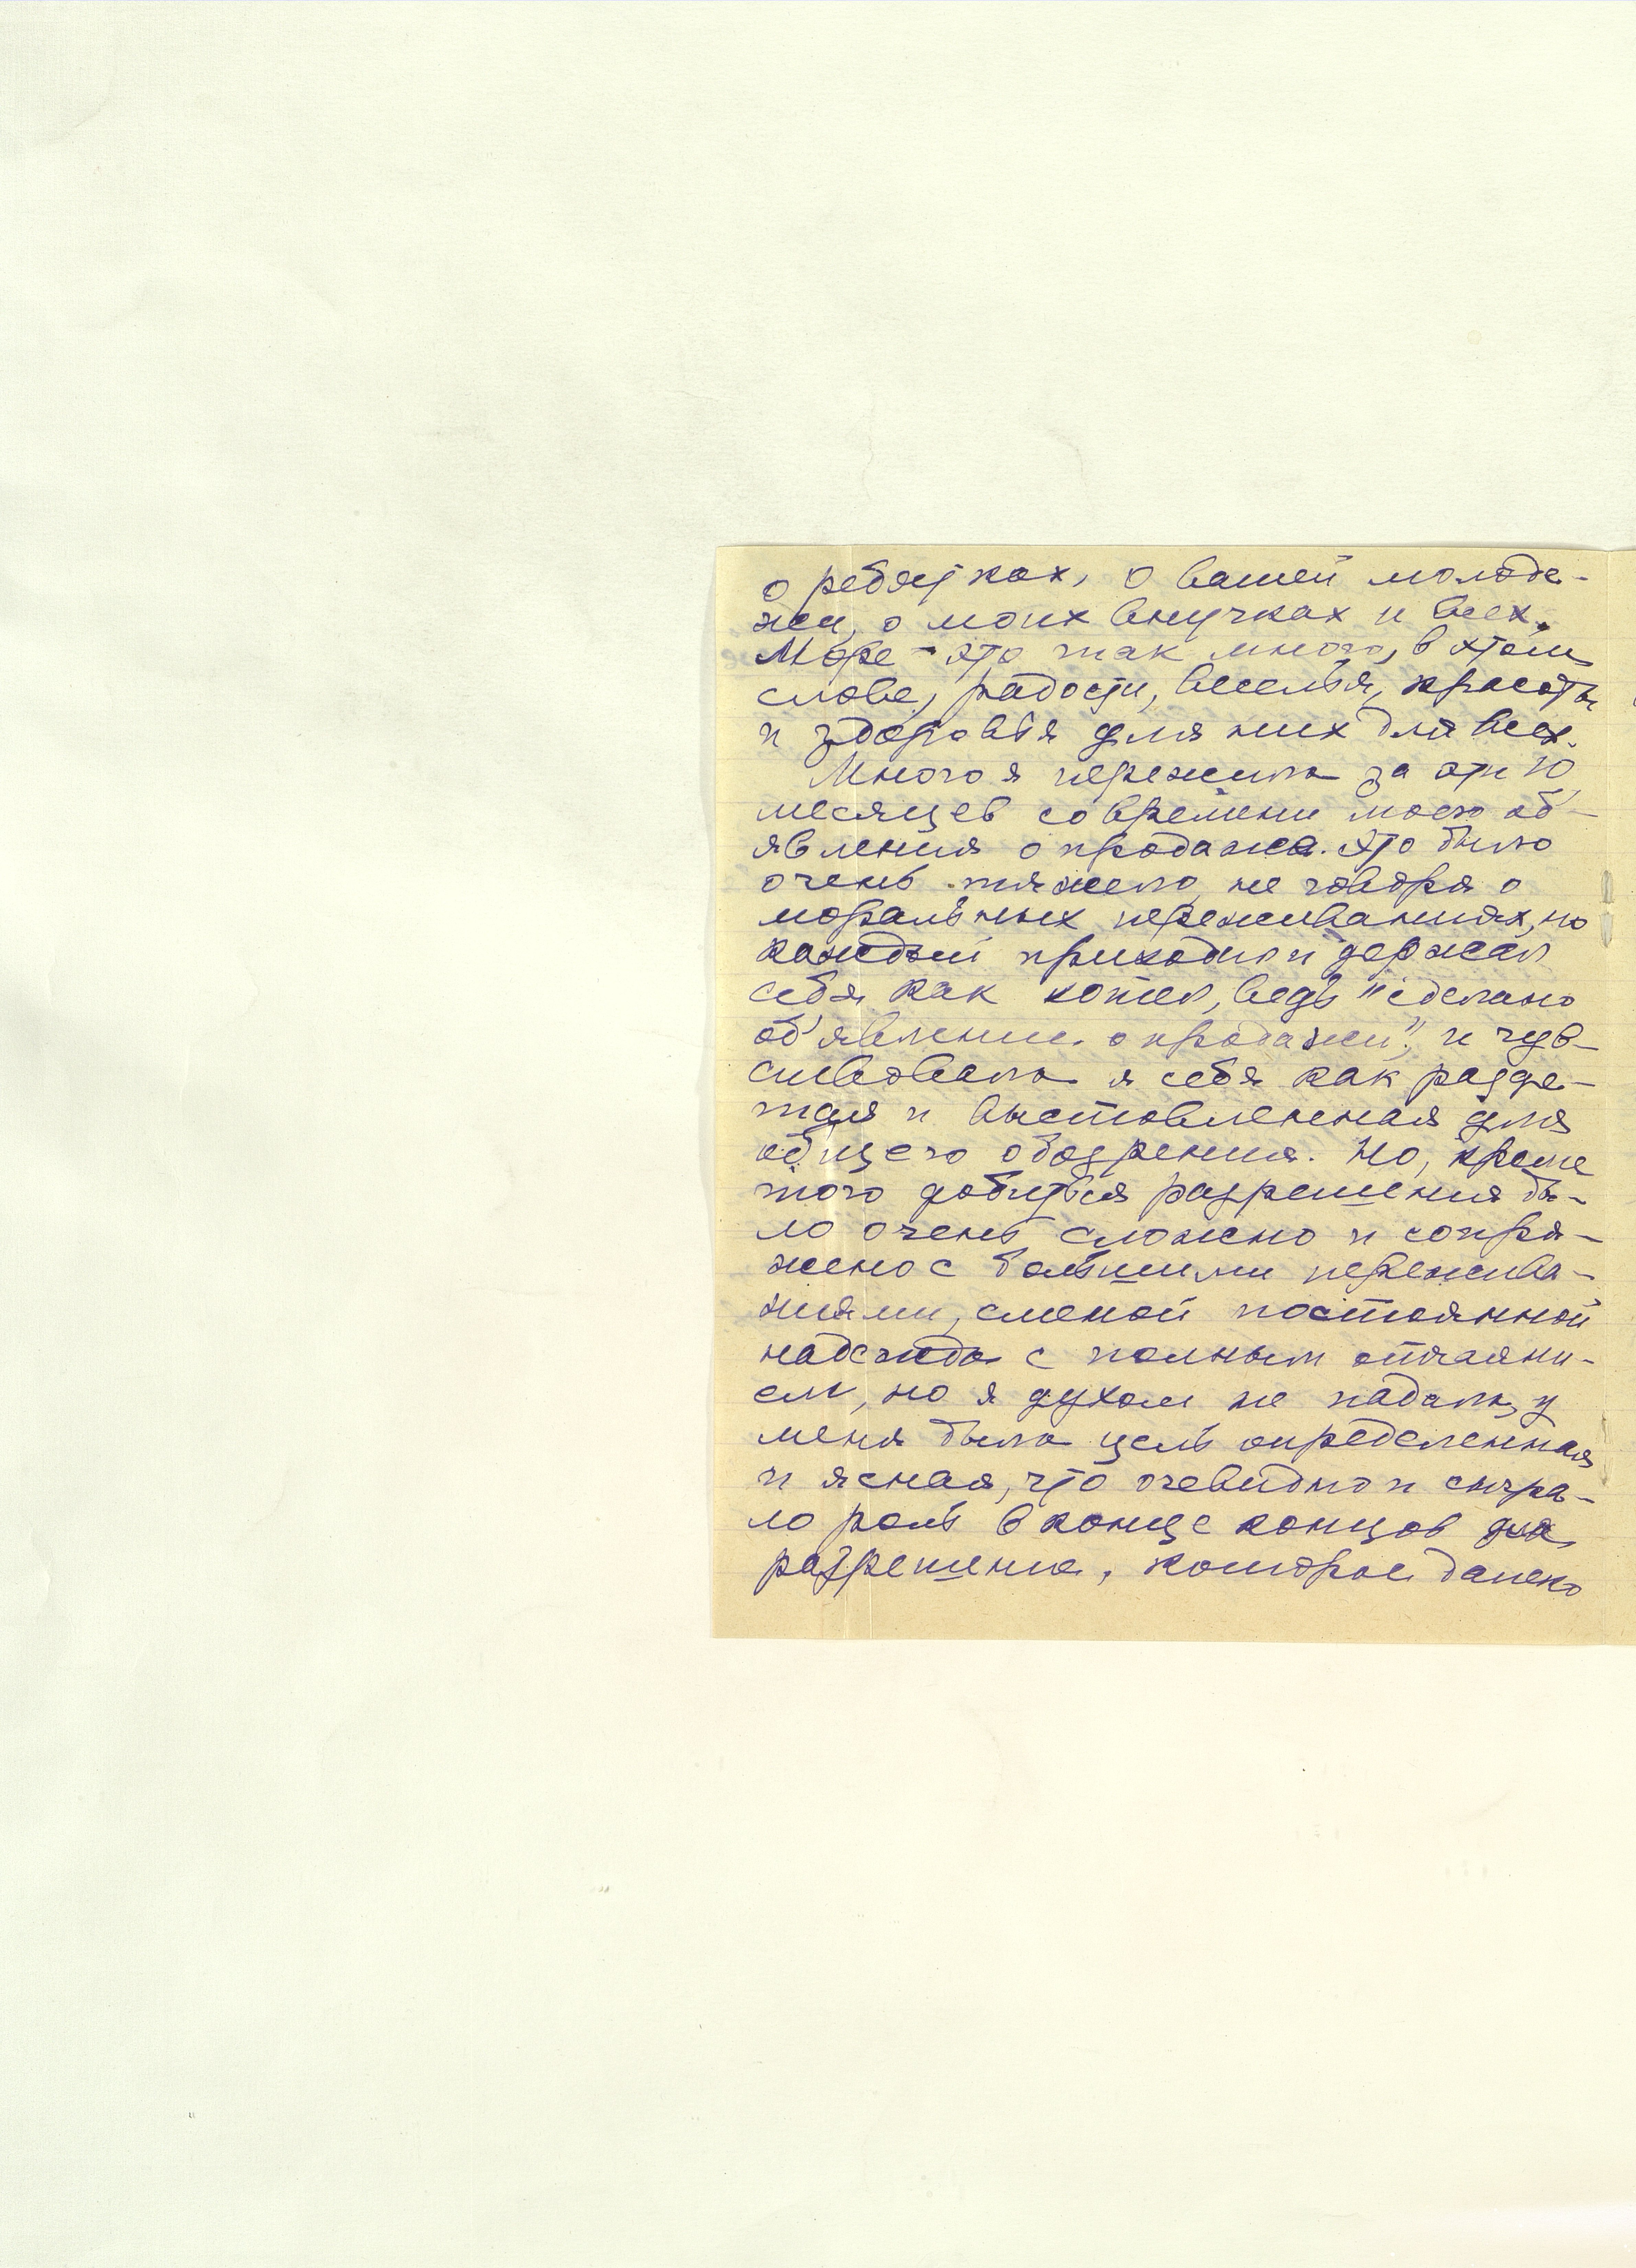 о ребятках, о вашей молоде-
жи, о моих внучках и всех.
Море - это так много, в этом
слове, радости, веселья, красоты
и здоровья для них для всех.
Много я пережила за эти 10
месяцев со времени моего об-
явления о продаже. Это было
очень тяжело, не говоря о
моральных переживаниях, но
каждый приходил и держал
себя как хотел, ведь "сделано
об'явление о продажи", и чув-
ствовала я себя как разде-
тая и выставленная для
общего обозрения. Но, кроме
того добиться разрешения бы-
ло очень сложно и сопря-
жено с большими пережива-
ниями, сменой постоянной
надежды с полным отчаяни-
ем, но я духом не падала, у
меня была цель определенная
и ясная, что очевидно и сыгра-
ло роль в конце концов для
разрешения, которое далеко